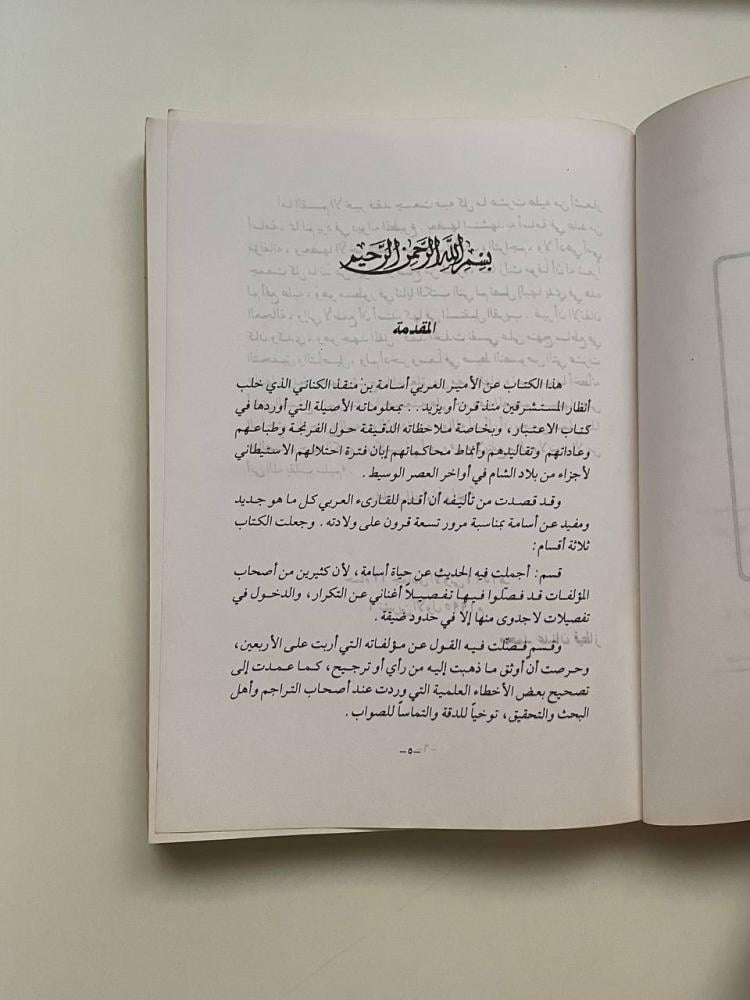 بسم الله الرحمن الرحيم
المقدمة
هذا الكتاب عن الأمير العربي أسامة بن منقذ الكناني الذي خلب
أنظار المستشرقين منذ قرن أو يزيد . . بمعلوماته الأصيلة التي أوردها في
كتاب الاعتبار، وبخاصة ملاحظاته الدقيقة حول الفرنجة وطباعهم
وعاداتهم وتقاليدهم وأنماط محاكماتهم إبان فترة احتلالهم الاستيطاني
لأجزاء من بلاد الشام في أواخر العصر الوسيط .
وقد قصدت من تأليفه أن أقدم للقارىء العربي كل ما هو جديد
ومفيد عن أسامة بمناسبة مرور تسعة قرون على ولادته . وجعلت الكتاب
ثلاثة أقسام :
قسم : أجملت فيه الحديث عن حياة أسامة، لأن كثيرين من أصحاب
المؤلفات قد فصّلوا فيها تفصيلاً أغناني عن التكرار، والدخول في
تفصيلات لا جدوى منها إلا في حدود ضيقة .
وقسم فصّلت فيه القول عن مؤلفاته التي أربت على الأربعين،
وحرصت أن أوثق ما ذهبت إليه من رأي أو ترجيح، كما عمدت إلى
تصحيح بعض الأخطاء العلمية التي وردت عند أصحاب التراجم وأهل
البحث والتحقيق، توخياً للدقة والتماساً للصواب .
-٥-